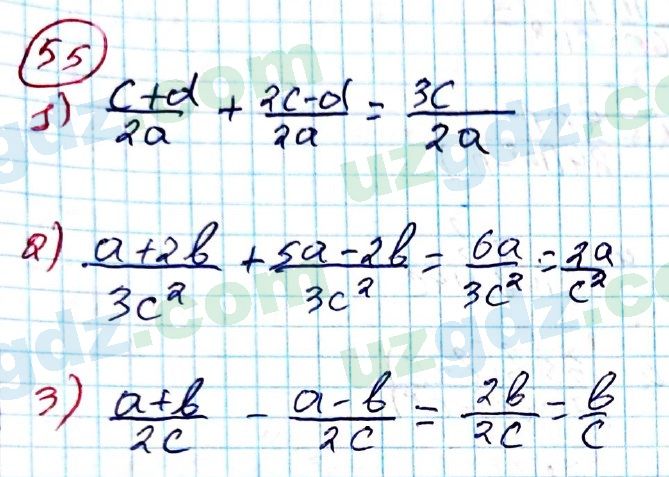 55
1) (c+d)/2a + (2c-d)/2a = 3c/2a
2) (a+2b)/3c² + (5a-2b)/3c² = 6a/3c² = 2a/c²
3) (a+b)/2c - (a-b)/2c = 2b/2c = b/c
uzgdz.com
uzgdz.com